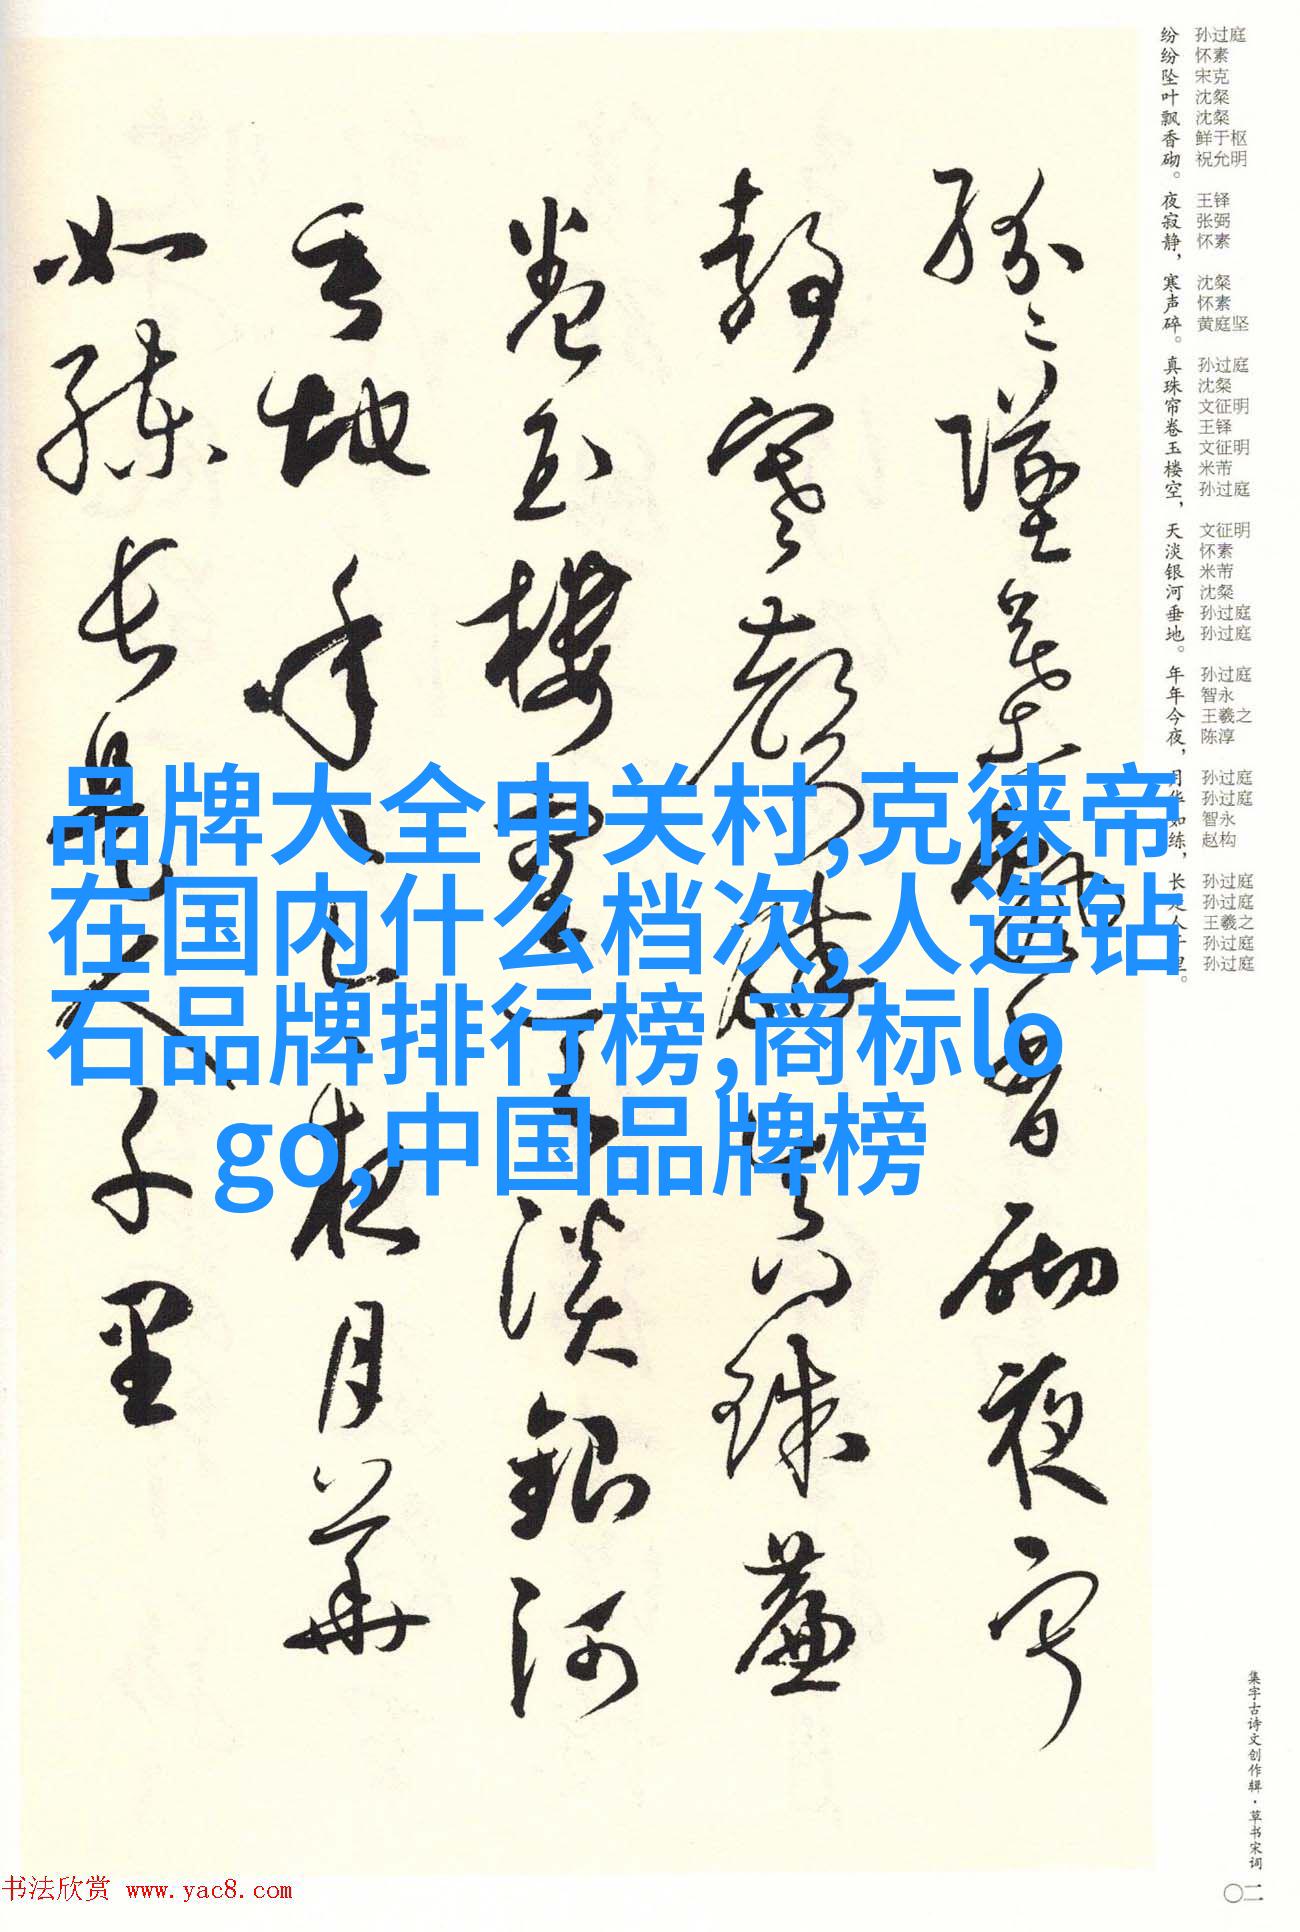 纷纷坠叶飘香砌。夜寂静，寒声碎。真珠帘卷玉楼空，天淡银河垂地。年年今夜，月华如练，长是人千里。
孙过庭
怀素
宋克
沈粲
沈粲
鲜于枢
祝允明
王铎
张弼
怀素
沈粲
怀素
黄庭坚
孙过庭
沈粲
文征明
王铎
文征明
米芾
孙过庭
文征明
怀素
米芾
沈粲
孙过庭
孙过庭
孙过庭
智永
王羲之
陈淳
孙过庭
孙过庭
智永
赵构
孙过庭
孙过庭
王羲之
孙过庭
孙过庭
纷〻坠叶飘香砌夜寂
静寒声碎真珠帘
卷玉楼空天淡银河
垂地年〻今夜月华
如练长是人千里
品牌大全中关村,克徕帝
在国内什么档次,人造钻
石品牌排行榜,商标lo
go,中国品牌榜
集字古诗文创作辑·草书宋词
〇二
书法欣赏 www.yac8.com